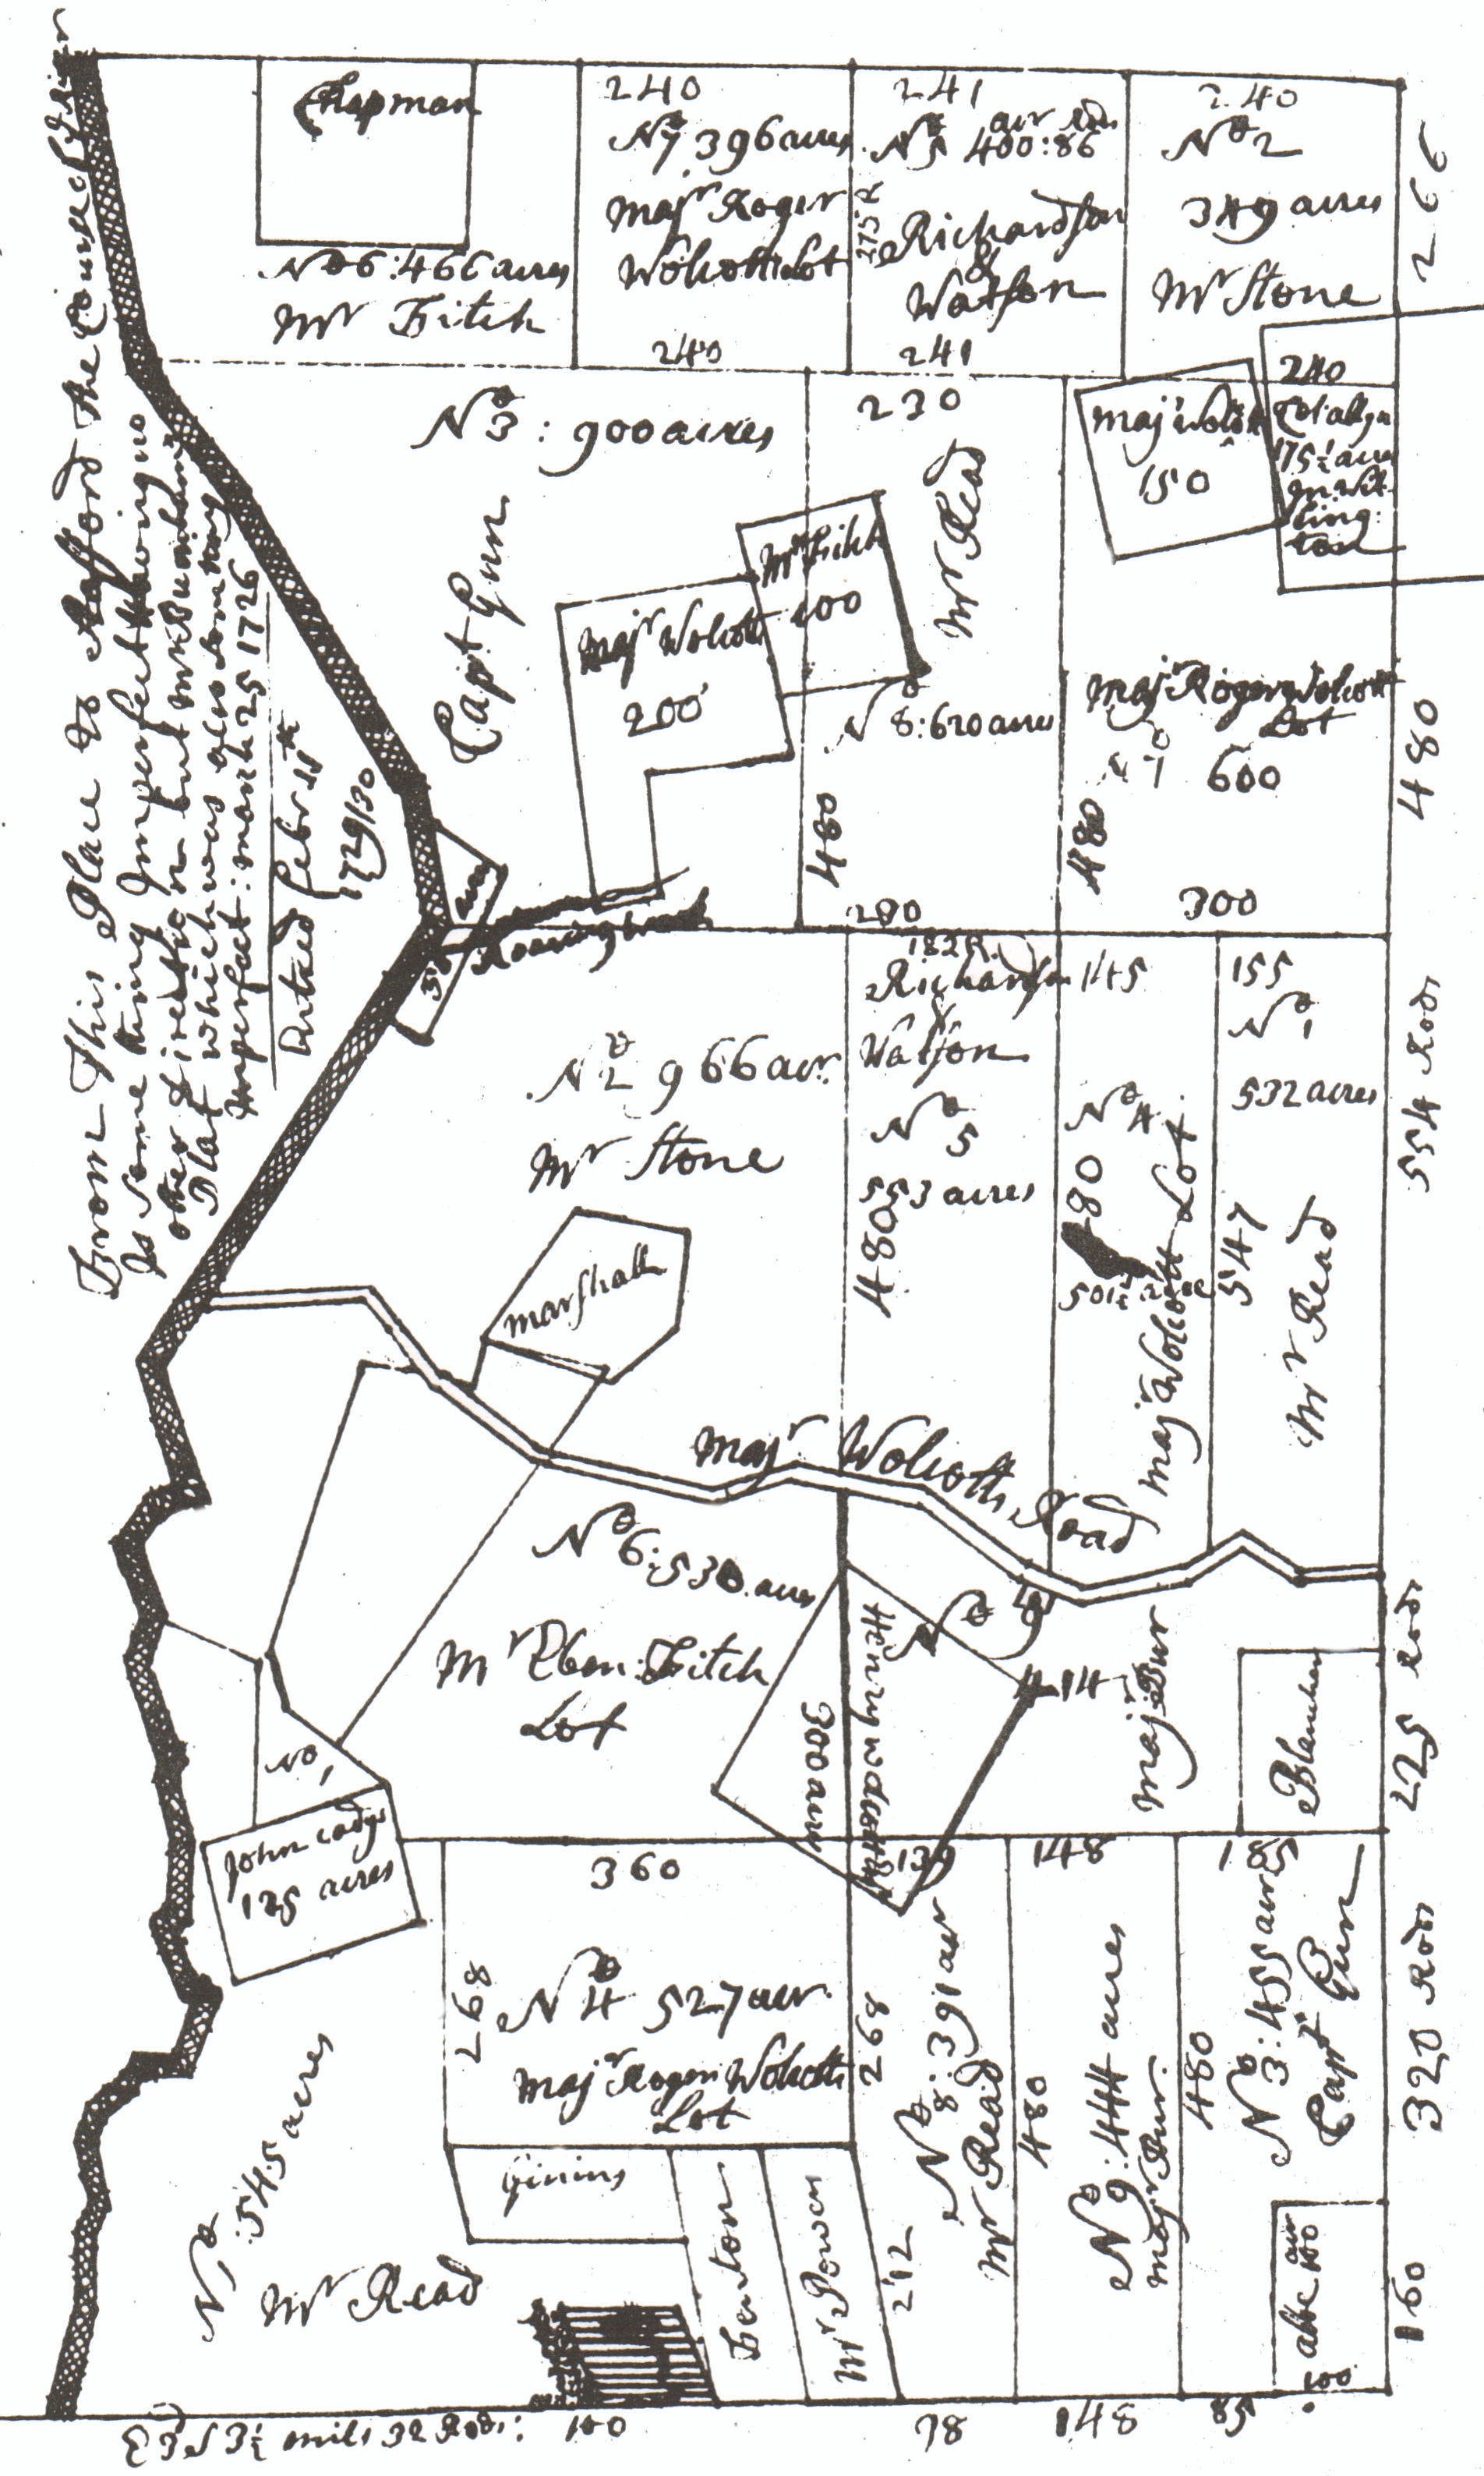 From This Place to Stafford the Course of ye River
Is some thing Imperfect having no
other direction but Mr Burnhams
Plat which was also some thing
Imperfect: march 25 1726
Dated febr 11th
1729/30
Chapman
No 6:466 acres
Mr Fitch
240
No 7 396 acres
Majr Roger
Wolcotts Lot
240
275 R
241
acr Rds
No 5 400:86
Richardson
&
Watson
241
240
No 2
349 acres
Mr Stone
266
240
No 3: 900 acres
Capt Gun
Majr Wolcott
200
Mr Fitch
100
230
Mr Read
No 8:620 acres
480
280
Majr Wolcott
150
175½ acres
in Wil
ling:
ton
Majr Roger Wolcott
Lot
600
480
300
480
Roaring brook
50
No 2 966 acr.
Mr Stone
Marshall
182 R
Richardson
Watson
No
5
553 acres
480
145
No
4
480
501½ acre
Majr Wolcott Lot
155
No
1
532 acres
547
Mr Read
554 Rods
Majr Wolcotts Road
No 6:530 acres
Mr Eben: Fitch
Lot
Henry Wolcott
300 acres
No 9
414
Majr Bur
225 Rods
No 1
John Cadys
125 acres
360
268
No 4 527 acr.
Majr Roger Wolcotts
Lot
268
139
No 8:391 acr
Mr Read
212
148
480
No 9:444 acres
Majr Bur.
185
480
No 3:455 acr
Capt Gun
320 Rods
No 1 545 acres
Mr Read
Ginins
Benton
Mr Powen
abbe 100 acr
100
160
E 3d S 3½ mils 32 Rods:
100
78
148
85